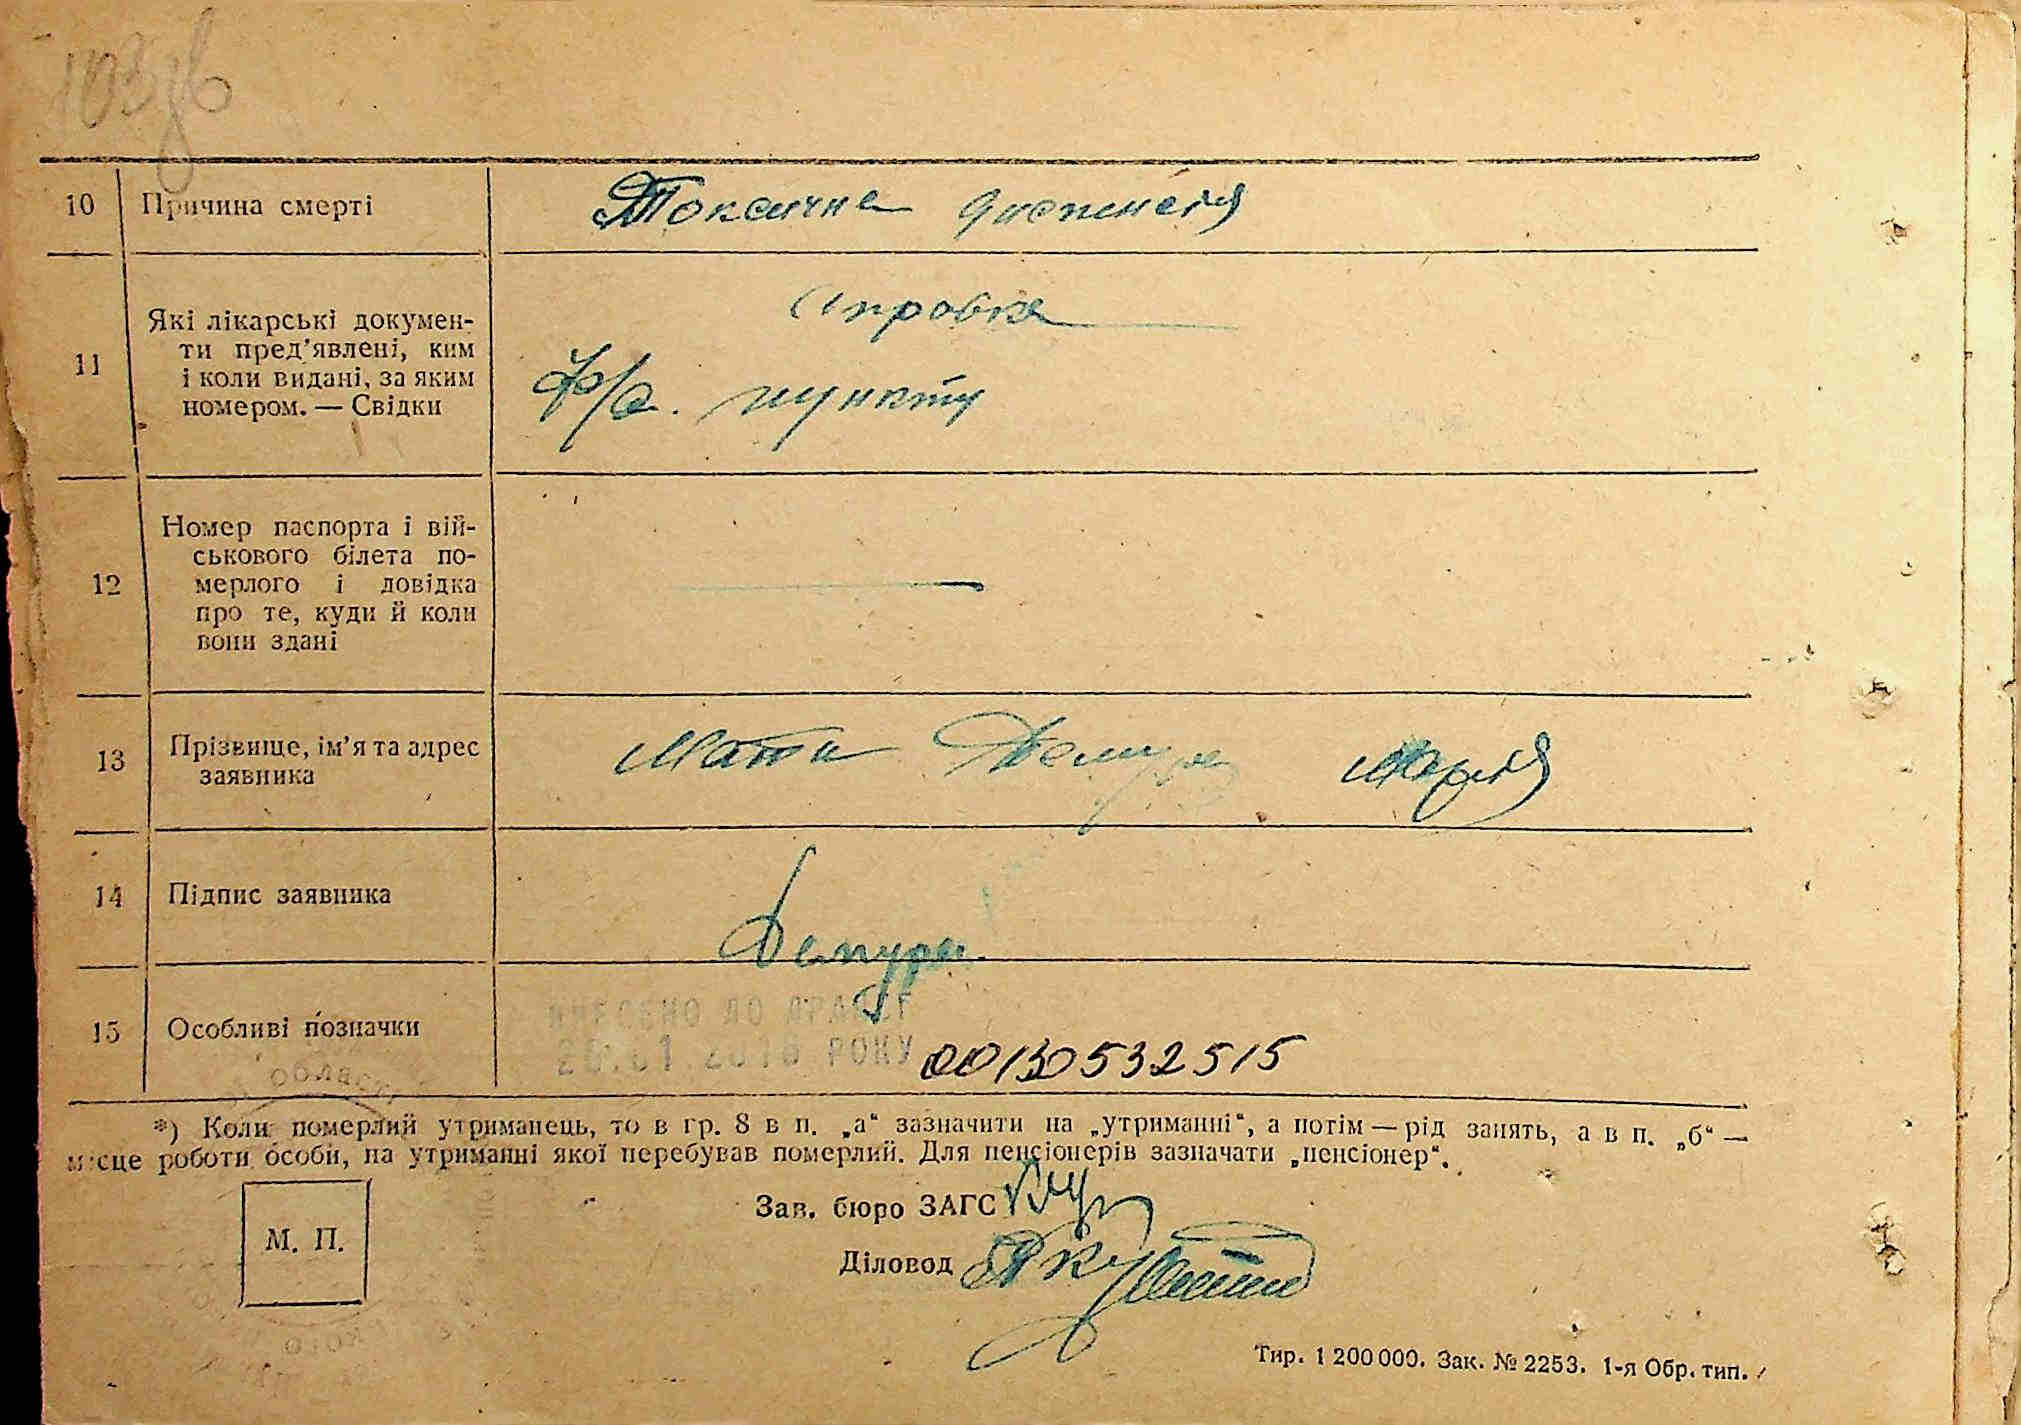 10 Причина смерті Токсична диспепсія
11 Які лікарські докумен-
ти пред’явлені, ким
і коли видані, за яким
номером. — Свідки
справка
ф/а. пункту
12 Номер паспорта і вій-
ськового білета по-
мерлого і довідка
про те, куди й коли
вони здані
13 Прізвище, ім’я та адрес
заявника
Мати Демура Марія
14 Підпис заявника
Демура
15 Особливі позначки
ВНЕСЕНО ДО ДРАЦСГ
РОКУ 00130532515
*) Коли померлий утриманець, то в гр. 8 в п. „а“ зазначити на „утриманні“, а потім — рід занять, а в п. „б“ —
місце роботи особи, на утриманні якої перебував померлий. Для пенсіонерів зазначати „пенсіонер“.
М. П.
Зав. бюро ЗАГС
Діловод
Тир. 1 200 000. Зак. № 2253. 1-я Обр. тип.